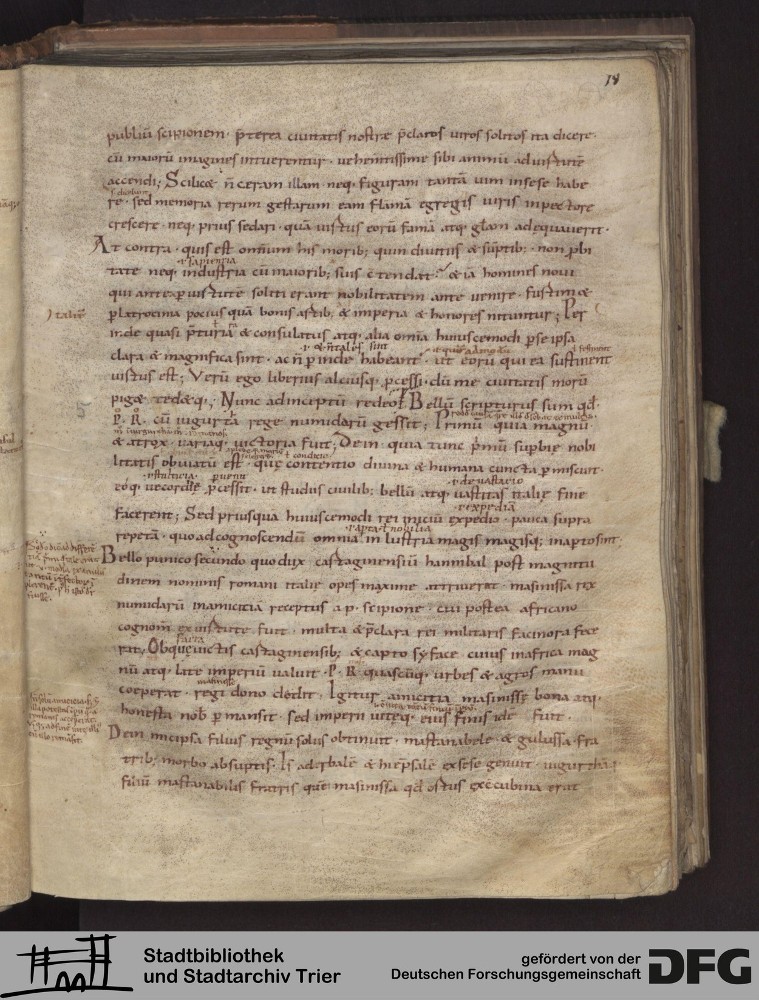 18
publiū scipionem · p̄terea ciuitatis nostrę p̄claros uiros solitos ita dicere ·
cū maiorū imagines intuerentur · uehementissime sibi animū ad uirtutē
accendi; Scilicet n̄ ceram illam · neq; figuram tantā uim in sese habe
re · sed memoria rerum gestarum eam flāmā egregiis uiris in pectore
crescere · neq; prius sedari · quā uirtus eorū famā atq; glām adequauerit ·
At contra · quis est omniū his morib; quin diuitiis & sūptib; · non pbi
tate neq; industria cū maiorib; suis ctendat · & iā homines noui
qui antea p uirtutē soliti erant nobilitatem ante uenire · furtim &
Italię
p latrocinia pocius quā bonis artib; & imperia & honores nituntur; Per
inde quasi p̄tura & consulatus atq; alia om̄ia huiuscemodi p se ipsa
clara & magnifica sint · ac n̄ p inde habeant · ut eorū qui ea sustinent
uirtus est; Verū ego liberius alciusq; pcessi · dū me ciuitatis morū
piget tedetq; ; Nunc ad inceptū redeo; Bellū scripturus sum qd̄
P · R · cū iugurta rege numidarū gessit; Primū quia magnū
& atrox · uariaq; uictoria fuit; Dein quia tunc p̄mū supbię nobi
litatis obuiatū est · quę contentio diuina & humana cuncta pmiscuit ·
eoq; uecordię pcessit · ut studiis ciuilib; bellū atq; uastitas italię finē
facerent; Sed priusquā huiuscemodi rei iniciū expedio · pauca supra
repetā · quo ad cognoscendū omnia inlustria magis magisq; in aperto sint
Bello punico secundo quo dux cartaginensiū hannibal post magnitu
dinem nominis romani italię opes maxime attriuerat · masinissa rex
numidarū in amiciciā receptus a p · scipione · cui postea africano
cognom̄ ex uirtute fuit · multa & p̄clara rei militaris facinora fece
rat · Obque uictis cartaginensib; & capto syface · cuius in africa mag
nū atq; late imperiū ualuit · P · R · quascūq; urbes & agros manu
coeperat · regi dono dedit · Igitur amicitia masinissę bona atq;
honesta nob̄ pmansit · sed imperii uitęq; eius finis idē fuit ·
Dein micipsa filius regnū solus obtinuit · mastanabele · & gulussa fra
trib; morbo absuptis · Is aderbalē & hiempsalē ex sese genuit · iugurthāq;
filiū mastanabilis fratris quē masinissa qd̄ ortus ex c̄cubina erat
Stadtbibliothek
und Stadtarchiv Trier
gefördert von der
Deutschen Forschungsgemeinschaft
DFG